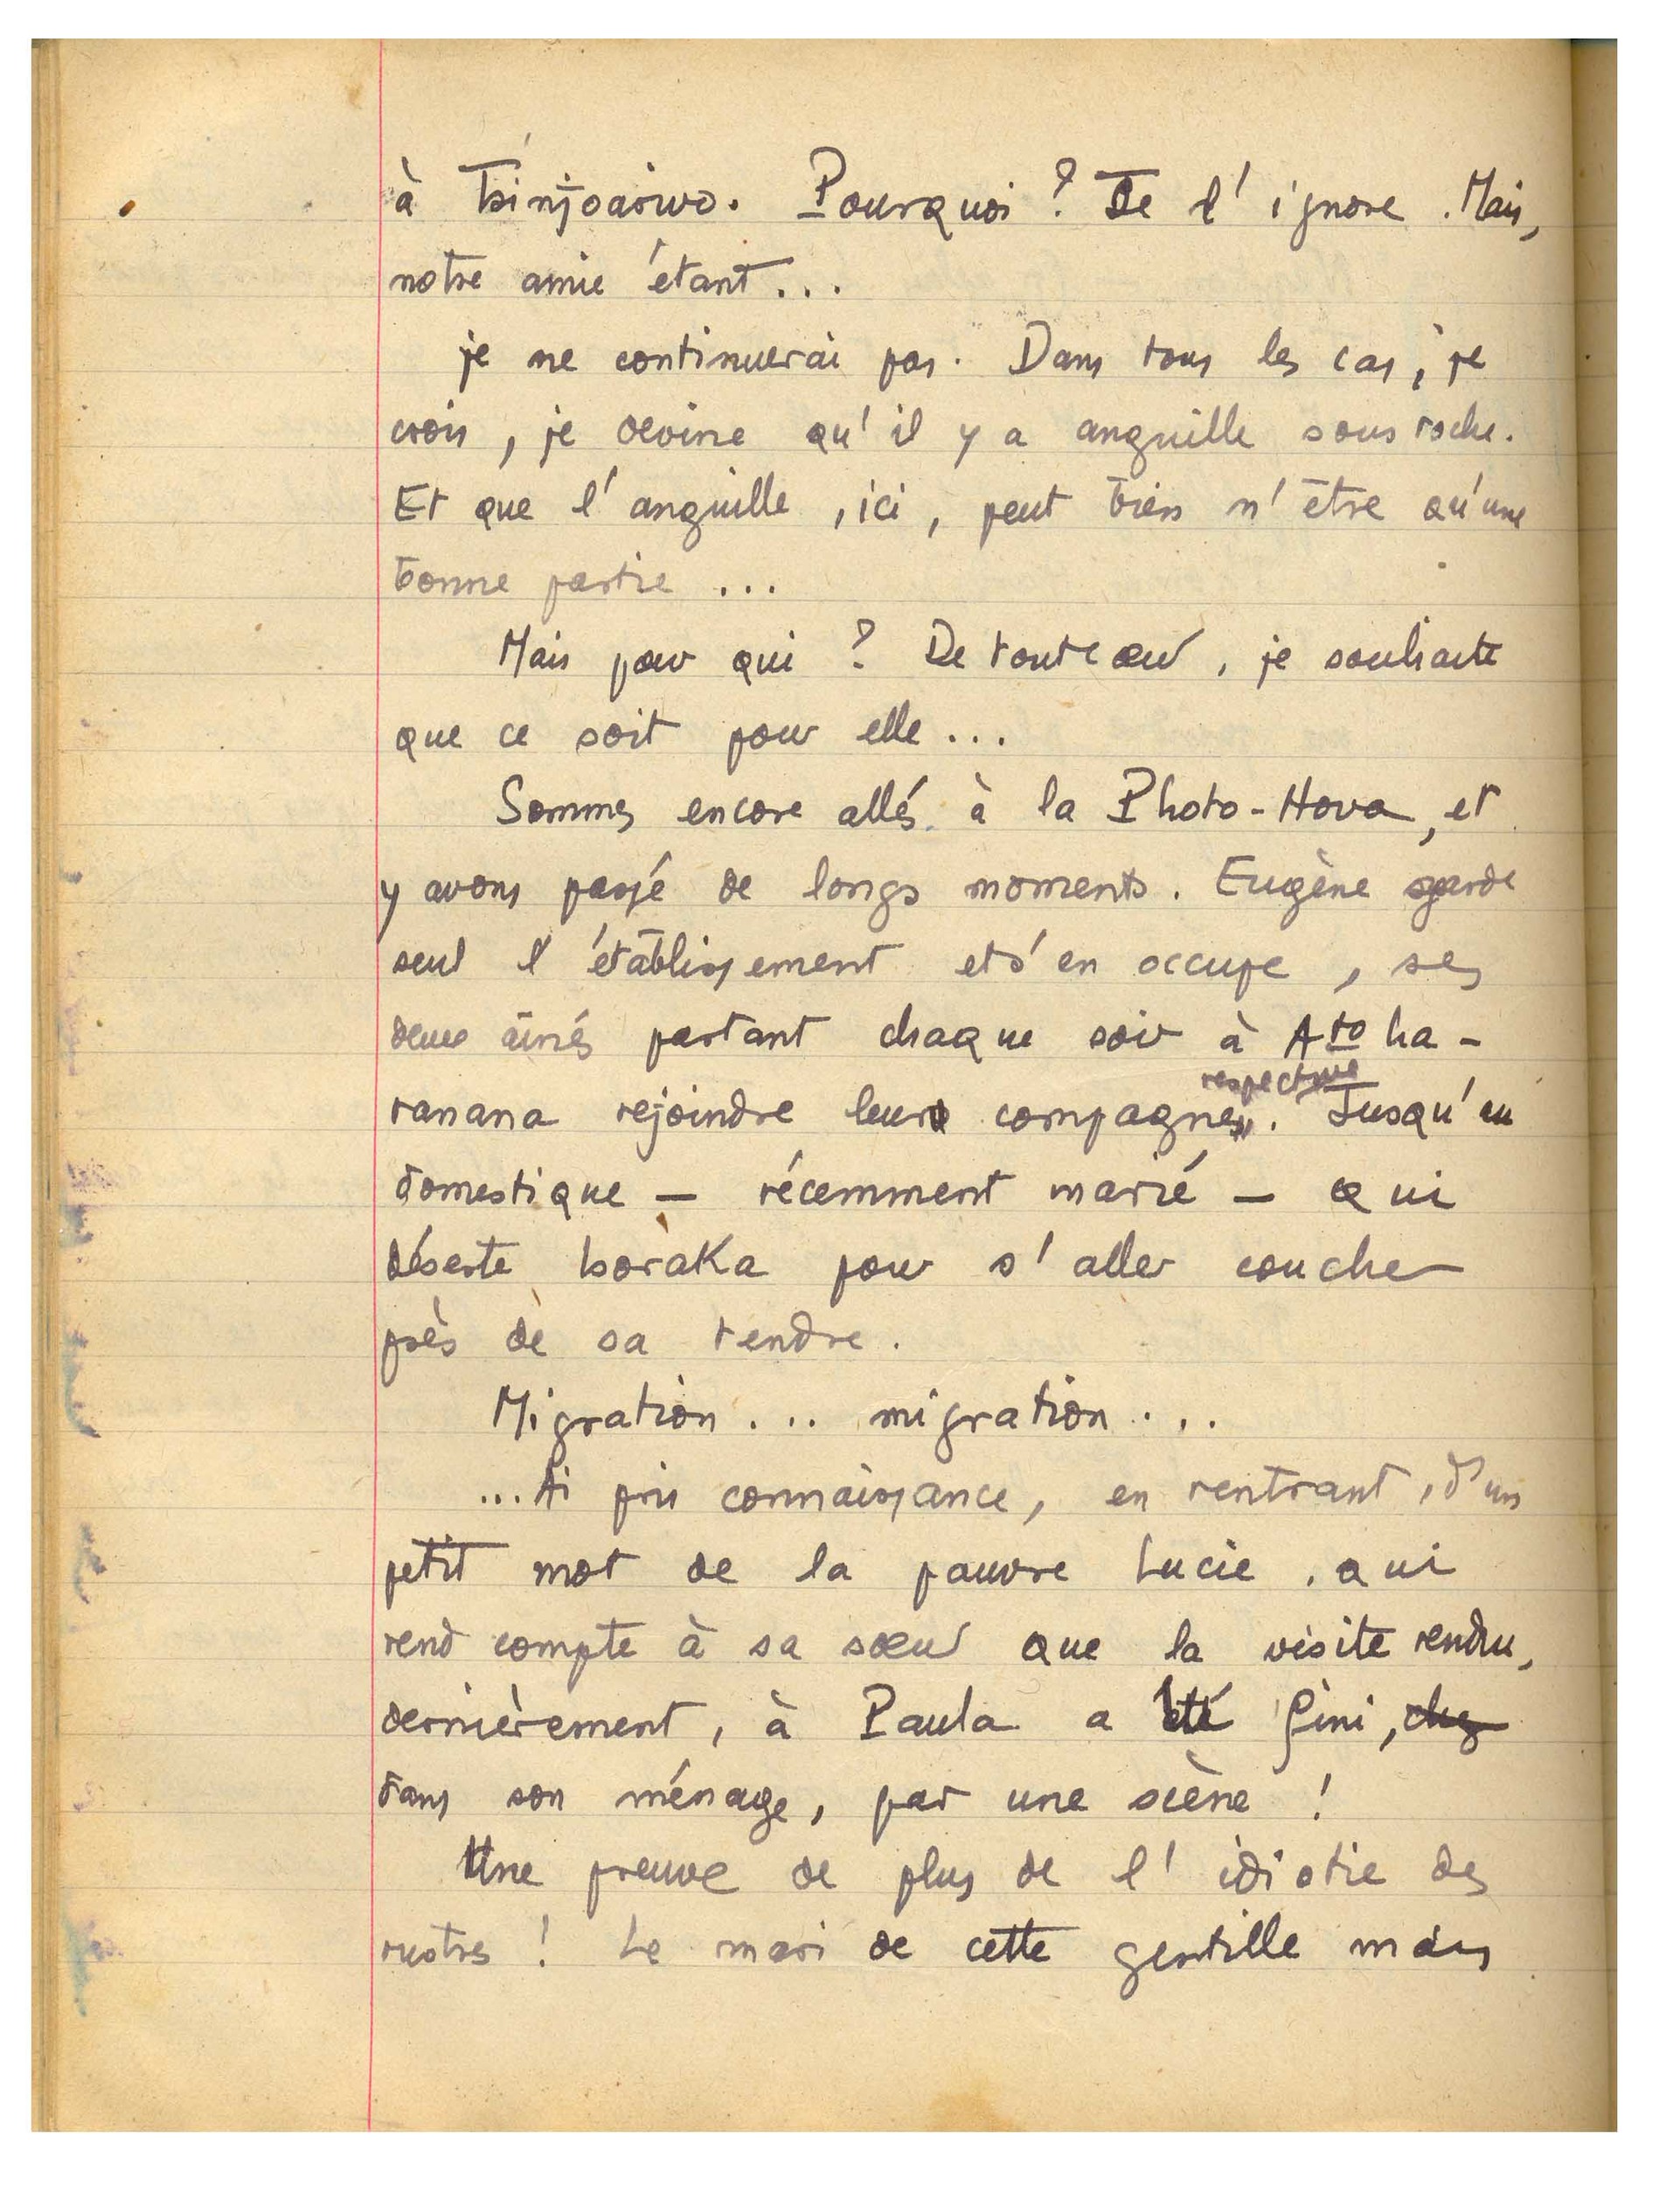 à Tsinjoarivo. Pourquoi ? Je l'ignore. Mais,
notre amie étant...
je ne continuerai pas. Dans tous les cas, je
crois, je devine qu'il y a anguille sous roche.
Et que l'anguille, ici, peut bien n'être qu'une
bonne partie...
Mais pour qui ? De tout cœur, je souhaite
que ce soit pour elle...
Sommes encore allés à la Photo-Hova, et
y avons passé de longs moments. Eugène garde
seul l'établissement et s'en occupe, ses
deux aînés partant chaque soir à Atoha-
ranana rejoindre leur compagne respective. Jusqu'au
domestique — récemment marié — qui
déserte Isoraka pour s'aller coucher
près de sa tendre.
Migration... migration...
...Ai pris connaissance, en rentrant, d'un
petit mot de la pauvre Lucie, qui
rend compte à sa sœur que la visite rendue,
dernièrement, à Paula a été fini, chez
dans son ménage, par une scène !
Une preuve de plus de l'idiotie des
rustres ! Le mari de cette gentille mais